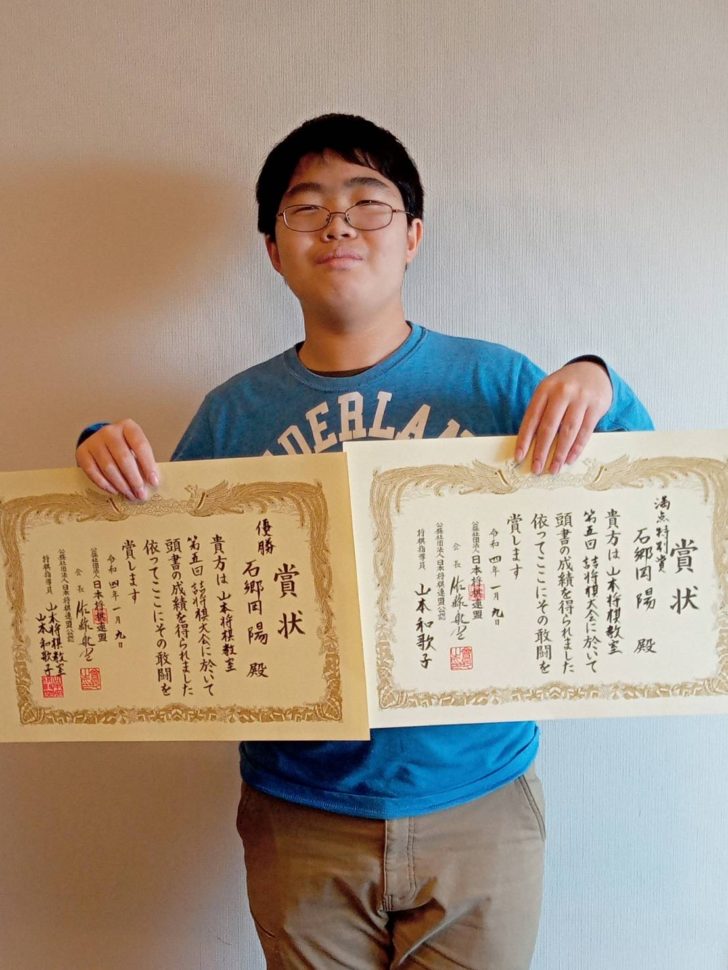 DERLAN
賞状
優勝
石郷岡 陽 殿
貴方は山本将棋教室
第五回詰将棋大会に於いて
頭書の成績を得られました
依ってここにその敢闘を
賞します
令和四年一月九日
公益社団法人 日本将棋連盟
会長
公益社団法人日本将棋連盟公認
将棋指導員 山本将棋教室
山本和歌子
賞状
満点特別賞
石郷岡 陽 殿
貴方は山本将棋教室
第五回詰将棋大会に於いて
頭書の成績を得られました
依ってここにその敢闘を
賞します
令和四年一月九日
公益社団法人 日本将棋連盟
会長
公益社団法人日本将棋連盟公認
将棋指導員 山本和歌子